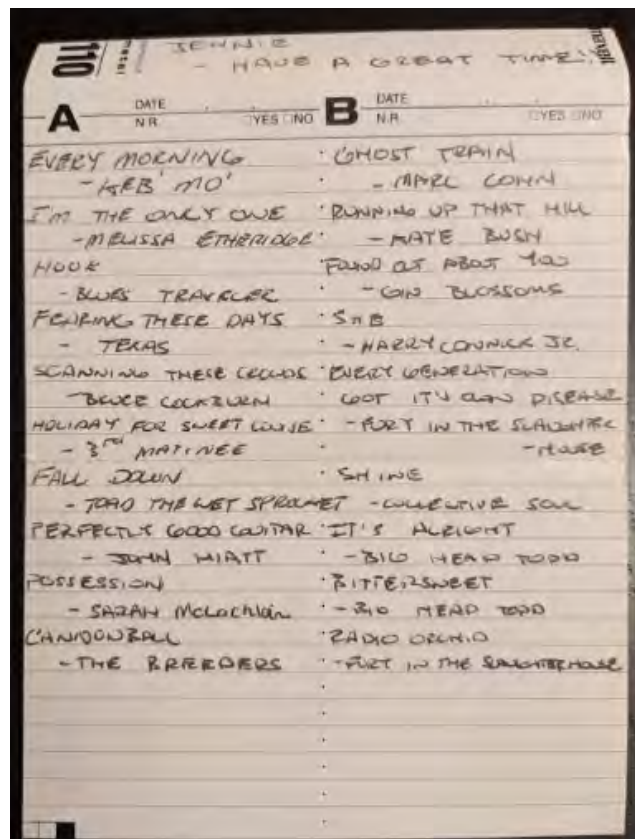 110
maxell
JENNIE
- HAVE A GREAT TIME!!
A DATE
N.R. YES NO
EVERY MORNING
- KEB' MO'
I'M THE ONLY ONE
- MELISSA ETHERIDGE
HOOK
- BLUES TRAVELER
FEARING THESE DAYS
- TEXAS
SCANNING THESE CROWDS
- BRUCE COCKBURN
HOLIDAY FOR SWEET LOUISE
- 3RD MATINEE
FALL DOWN
- TOAD THE WET SPROCKET
PERFECTLY GOOD GUITAR
- JOHN HIATT
POSSESSION
- SARAH McLachlan
CANNONBALL
- THE BREEDERS
B DATE
N.R. YES NO
GHOST TRAIN
- MARC COHN
RUNNING UP THAT HILL
- KATE BUSH
FOUND OUT ABOUT YOU
- GIN BLOSSOMS
SHE
- HARRY CONNICK JR.
EVERY GENERATION
GOT IT'S OWN DISEASE
- FURY IN THE SLAUGHTER
- HOUSE
SHINE
- COLLECTIVE SOUL
IT'S ALRIGHT
- BIG HEAD TODD
BITTERSWEET
- BIG HEAD TODD
RADIO ORCHID
- FURY IN THE SLAUGHTERHOUSE